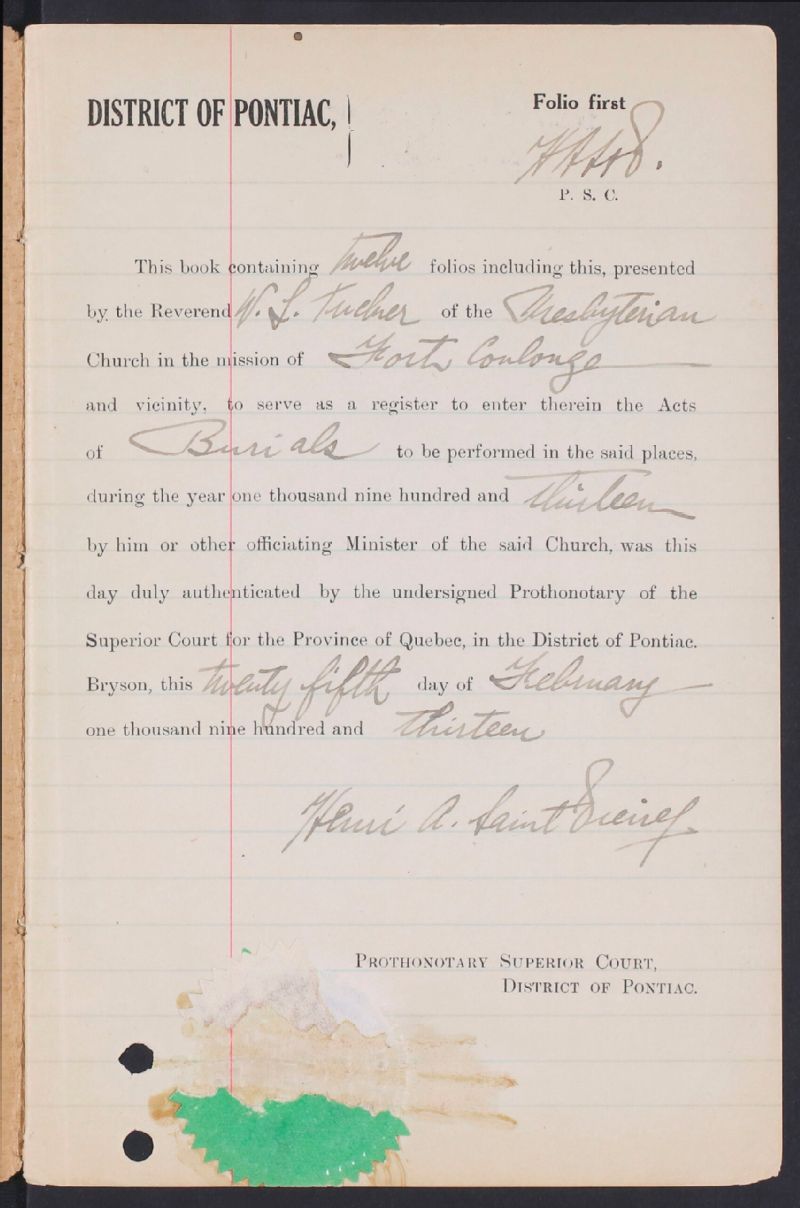 DISTRICT OF PONTIAC,
Folio first
P. S. C.
This book containing twelve folios including this, presented
by the Reverend W. L. Tucker of the Presbyterian
Church in the mission of Fort Coulonge
and vicinity, to serve as a register to enter therein the Acts
of Burials to be performed in the said places,
during the year one thousand nine hundred and thirteen
by him or other officiating Minister of the said Church, was this
day duly authenticated by the undersigned Prothonotary of the
Superior Court for the Province of Quebec, in the District of Pontiac.
Bryson, this twenty fifth day of February
one thousand nine hundred and thirteen
Henri A. Saint Pierre
PROTHONOTARY SUPERIOR COURT,
DISTRICT OF PONTIAC.